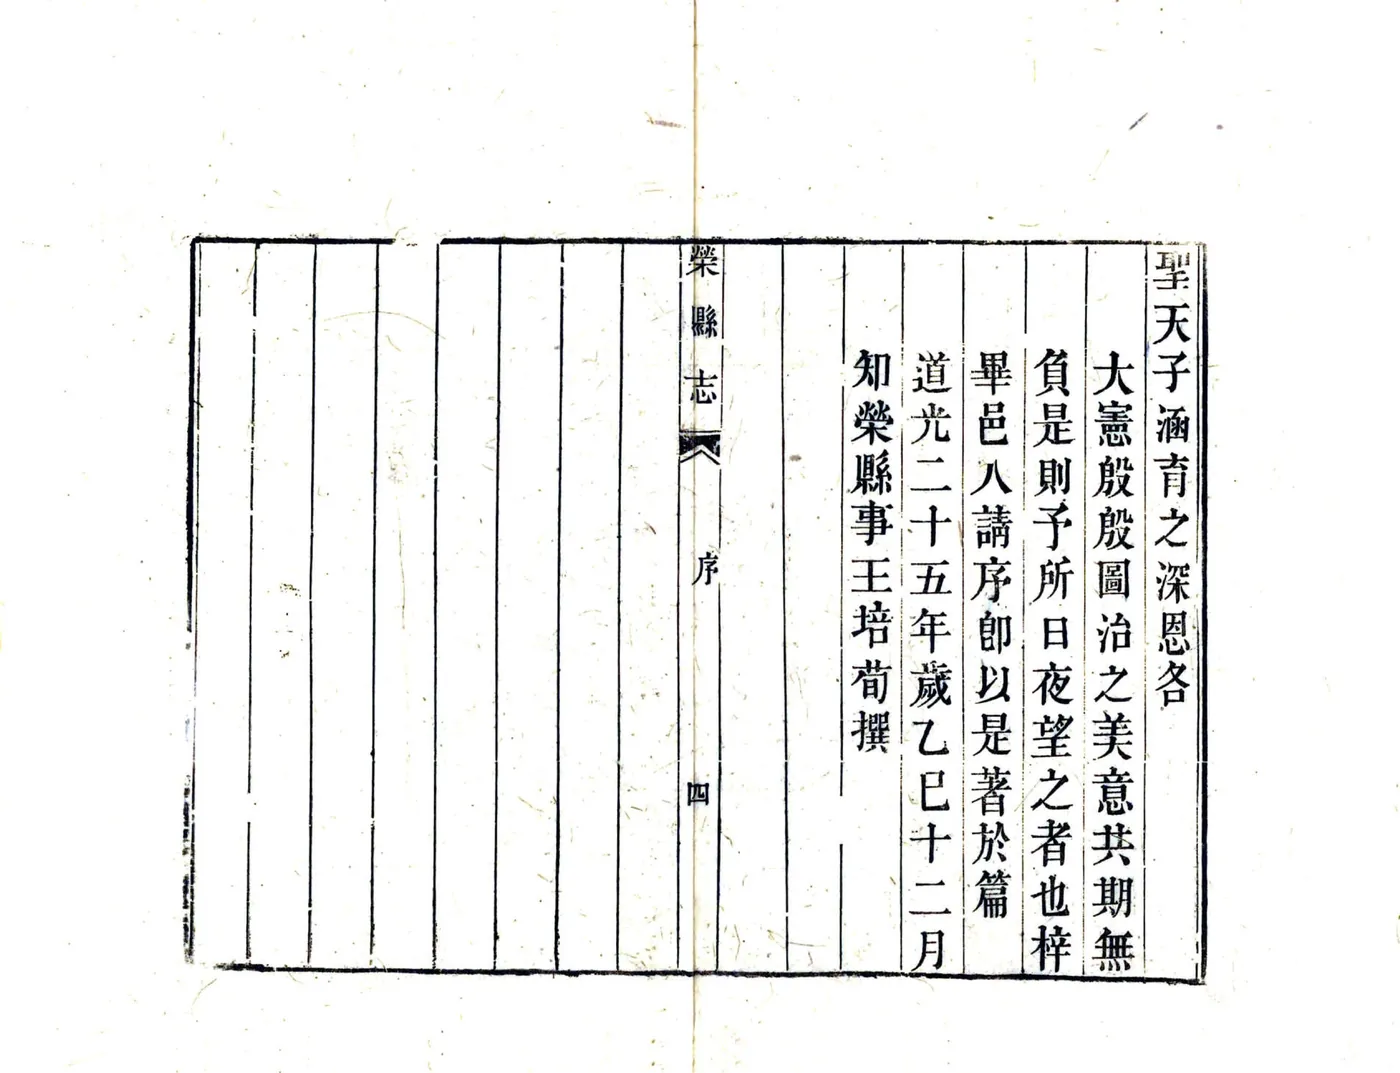 聖天子涵育之深恩各
大憲殷殷圖治之美意共期無
負是則予所日夜望之者也梓
畢邑人請序卽以是著於篇
道光二十五年歲乙巳十二月
知榮縣事王培荀撰
榮縣志
序
四